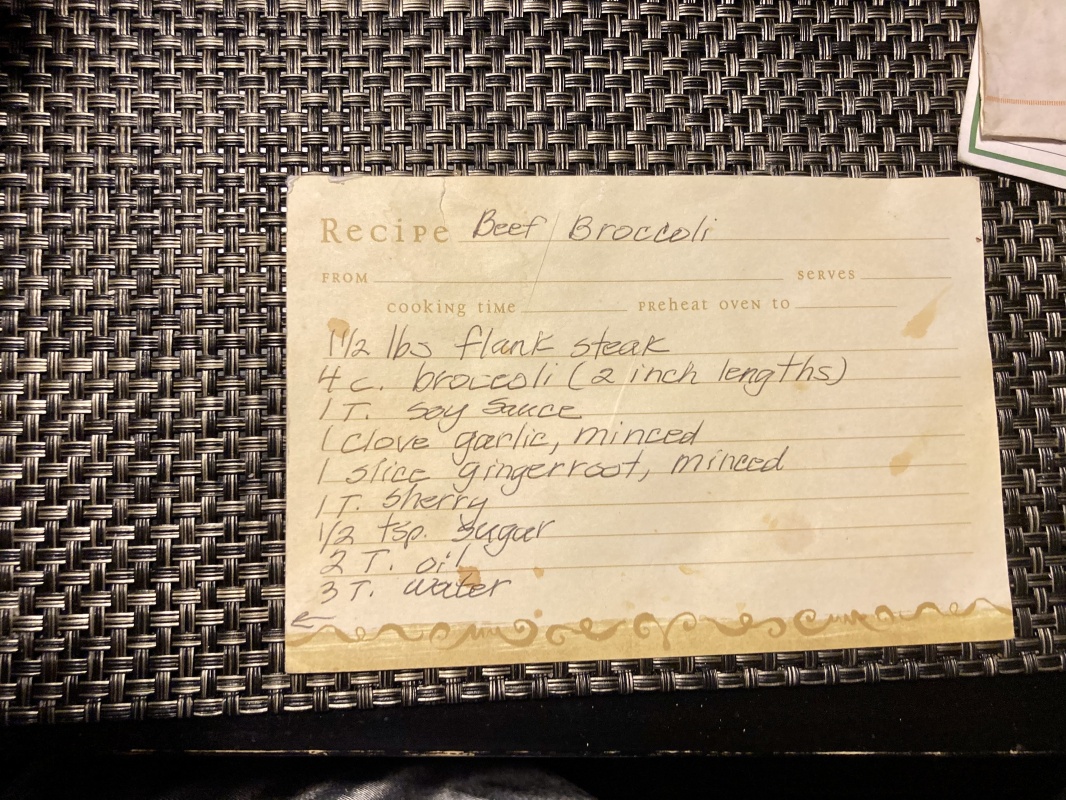 Recipe Beef / Broccoli
FROM serves
cooking time preheat oven to
1 1/2 lbs flank steak
4 c. broccoli (2 inch lengths)
1 T. soy sauce
1 clove garlic, minced
1 slice gingerroot, minced
1 T. sherry
1/2 tsp. sugar
2 T. oil
3 T. water
←